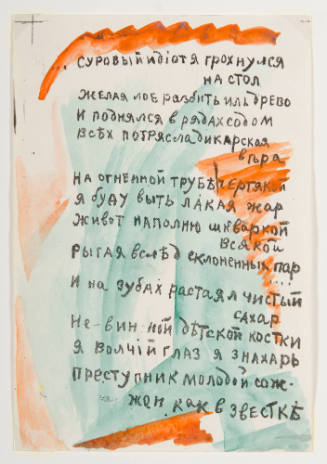 суровый идіот я грохнулся
на стол
желая лоб разбить иль древо
и поднялся в рядах содом
всѣх потрясла дикарская
вѣра
на огненной трубѣ чертякой
я буду выть лакая жар
живот наполню шкваркой
всякой
рыгая вслѣд склоненных пар
...
и на зубах растаял чистый
сахар
не-винной дѣтской костки
я волчій глаз я знахарь
преступник молодой сож-
жен как в звесткѣ